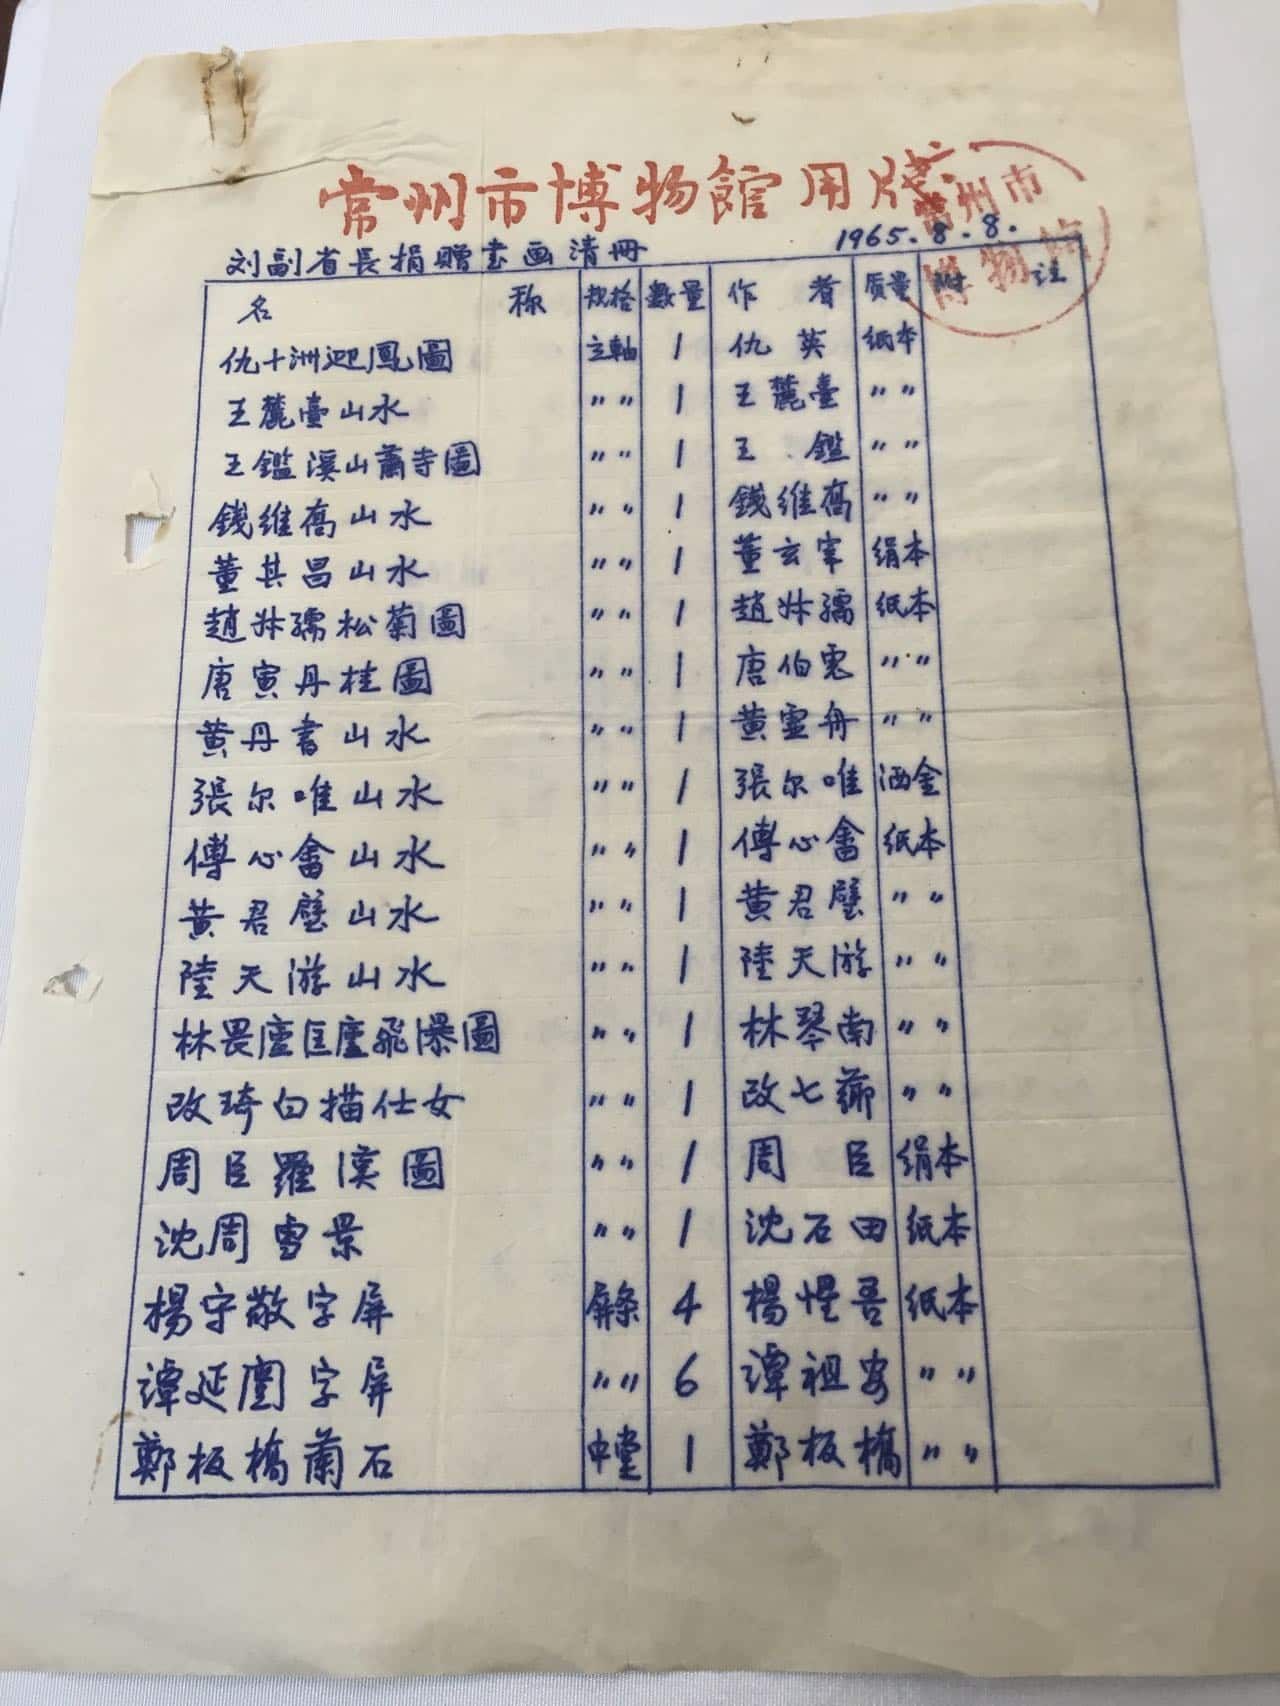 常州市博物館用牋
常州市
博物館
刘副省長捐贈書画清冊 1965.8.8.
名 称 规格 数量 作 者 质量 附 註
仇十洲迎鳳圖 立軸 1 仇 英 纸本
王麓臺山水 〃〃 1 王麓臺 〃〃
王鑑溪山蕭寺圖 〃〃 1 王 鑑 〃〃
錢維喬山水 〃〃 1 錢維喬 〃〃
董其昌山水 〃〃 1 董玄宰 绢本
趙叔孺松菊圖 〃〃 1 趙叔孺 纸本
唐寅丹桂圖 〃〃 1 唐伯虎 〃〃
黄丹書山水 〃〃 1 黄虚舟 〃〃
張尔唯山水 〃〃 1 張尔唯 洒金
傅心畬山水 〃〃 1 傅心畬 纸本
黄君璧山水 〃〃 1 黄君璧 〃〃
陸天游山水 〃〃 1 陸天游 〃〃
林畏廬匡廬飛瀑圖 〃〃 1 林琴南 〃〃
改琦白描仕女 〃〃 1 改七薌 〃〃
周臣羅漢圖 〃〃 1 周 臣 绢本
沈周雪景 〃〃 1 沈石田 纸本
楊守敬字屏 屏条 4 楊惺吾 纸本
譚延闓字屏 〃〃 6 譚祖安 〃〃
鄭板橋蘭石 中堂 1 鄭板橋 〃〃